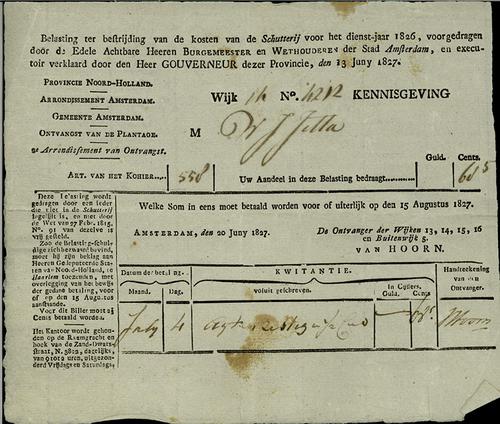 Belasting ter bestrijding van de kosten van de Schutterij voor het dienst-jaar 1826, voorgedragen
door de Edele Achtbare Heeren BURGEMEESTER en WETHOUDEREN der Stad Amsterdam, en execu-
toir verklaard door den Heer GOUVERNEUR dezer Provincie, den 13 Juny 1827.
PROVINCIE NOORD-HOLLAND.
ARRONDISSEMENT AMSTERDAM.
GEMEENTE AMSTERDAM.
ONTVANGST VAN DE PLANTAGE.
Arrondissement van Ontvangst.
Wijk 14 No. 4212 KENNISGEVING
M
ART. VAN HET KOHIER 558
Guld. Cents.
Uw Aandeel in deze Belasting bedraagt 68 5
Deze belasting wordt
gedragen door een ieder
die niet in de Schutterij
ingelijfd is, en met door
de Wet van 27 Febr. 1815.
No. 91 van dezelve is
vrij gesteld.
Zoo de Belasting-schul-
dige zich bezwaard bevind,
moet hij zijn beklag aan
Heeren Gedeputeerde Sta-
ten van Noord-Holland, te
Haarlem toezenden, met
overlegging van het bewijs
der gedane betaling, voor
of op den 15 Augustus
aanstaande.
Voor dit Billet moet
Cents betaald worden.
Het Kantoor wordt gehou-
den op de Raamgracht en
hoek van de Zand-dwars-
straat, N. 3812, dagelijks,
van 9 tot 2 uren, uitgezon-
derd Vrijdags en Saturdags.
Welke Som in eens moet betaald worden voor of uiterlijk op den 15 Augustus 1827.
AMSTERDAM, den 20 Juny 1827.
De Ontvanger der Wijken 13, 14, 15, 16
en Buitenwijk 5.
VAN HOORN.
Datum der betaling.
KWITANTIE.
Handteekening
van den
Ontvanger.
Maand. Dag.
voluit geschreven.
in Cijfers.
Guld. Cents
July 4
68 5